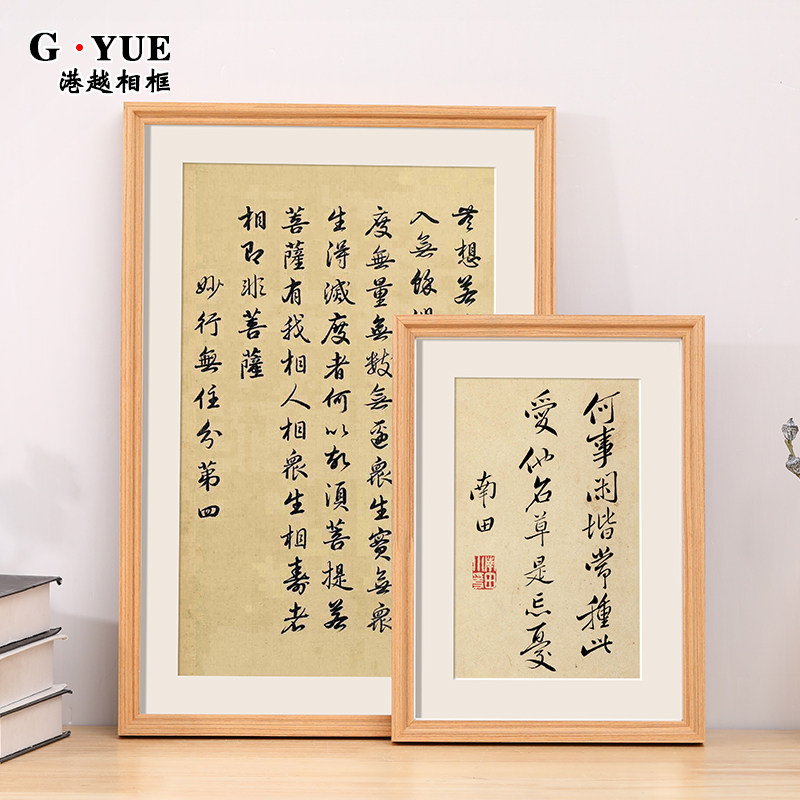 G·YUE
港越相框
无想若
入無餘涅
度無量無数無邊眾生實無眾
生得滅度者何以故須菩提若
菩薩有我相人相眾生相壽者
相即非菩薩
妙行無住分第四
何事閑堦常種此
愛他名草是忘憂
南田